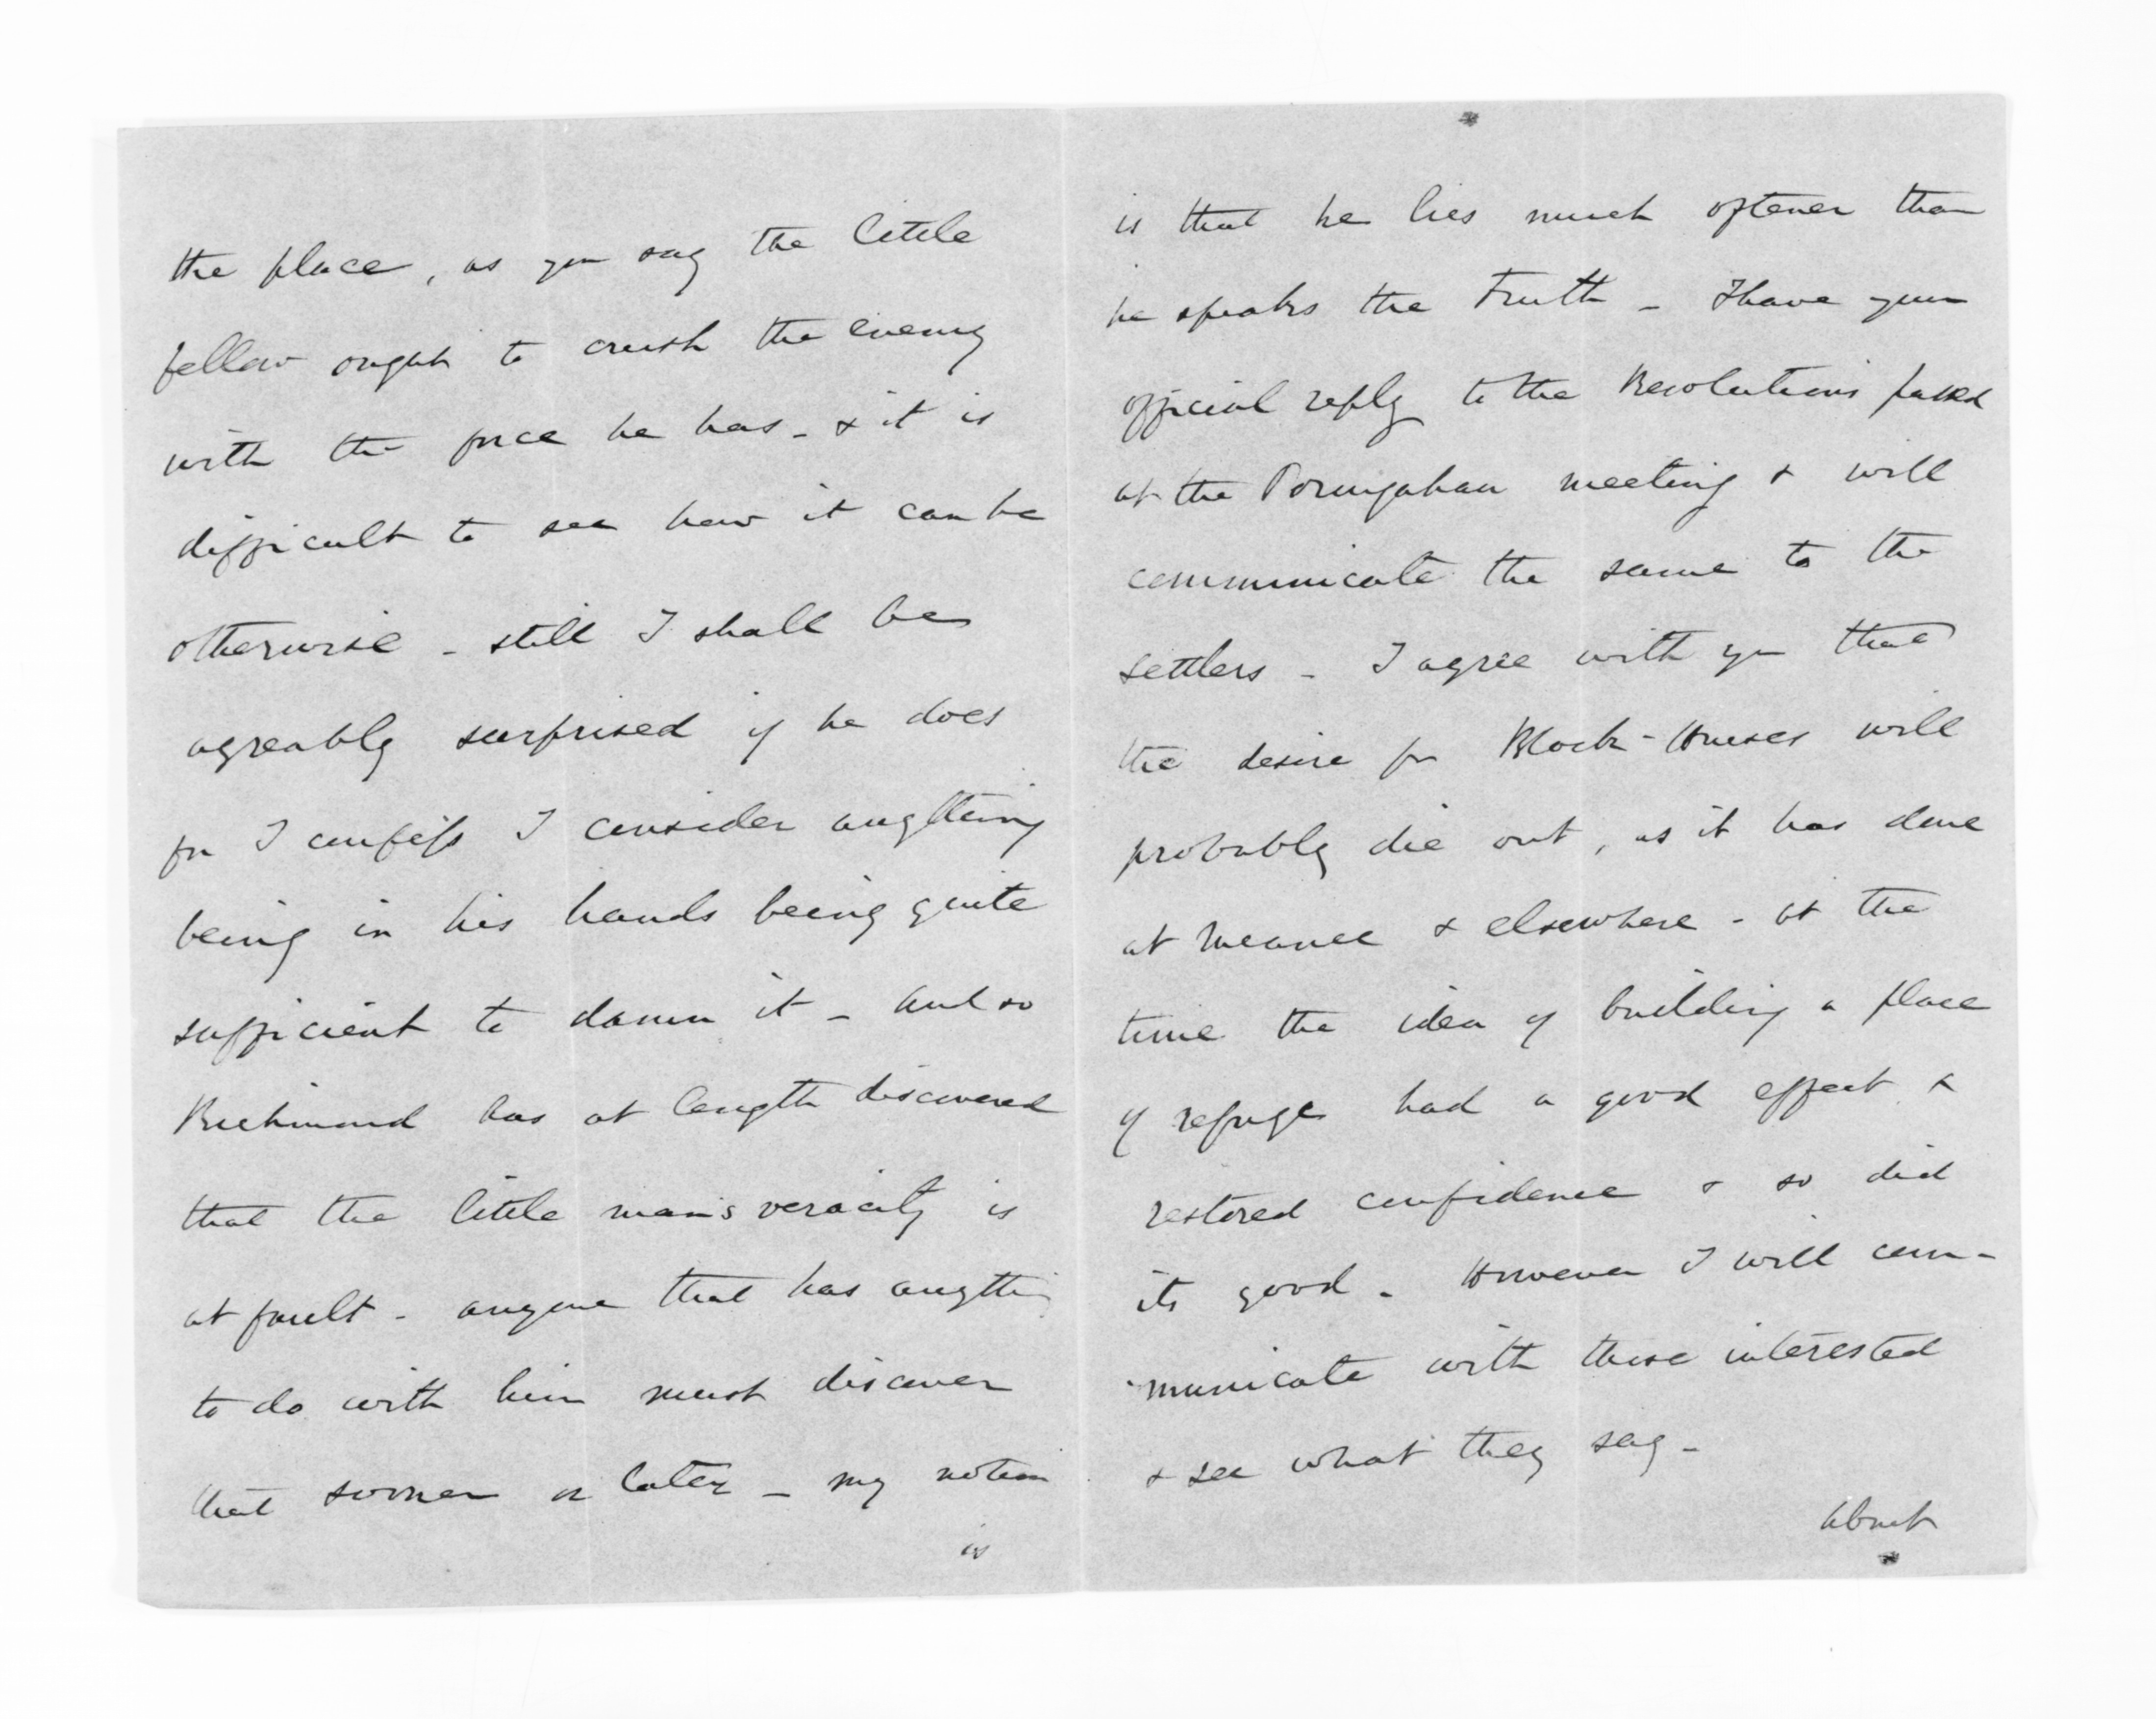 the place, as you say the little
fellow ought to crush the enemy
with the force he has - & it is
difficult to see how it can be
otherwise - still I shall be
agreably surprised if he does
for I confess I consider anything
being in his hands being quite
sufficient to damn it - and so
Richmond has at length discovered
that the little man's veracity is
at fault - anyone that has anything
to do with him must discover
that sooner or later - my notion
is
is that he lies much oftener than
he speaks the truth - I have your
official reply to the Resolutions passed
at the Porangahau meeting & will
communicate the same to the
settlers - I agree with you that
the desire for Block-Houses will
probably die out, as it has done
at Meanee & elsewhere - at the
time the idea of building a place
of refuge had a good effect &
restored confidence & so did
its good. However I will com-
municate with those interested
& see what they say -
About